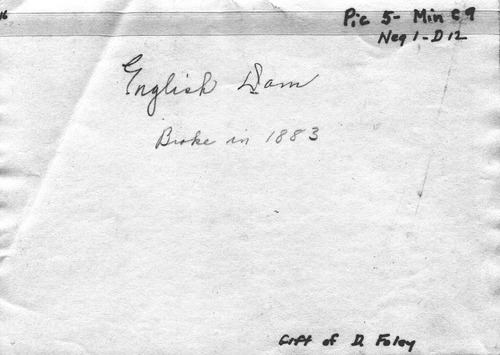 16
Pic 5- Min C 9
Neg 1-D12
English Dam
Broke in 1883
Gift of D. Foley